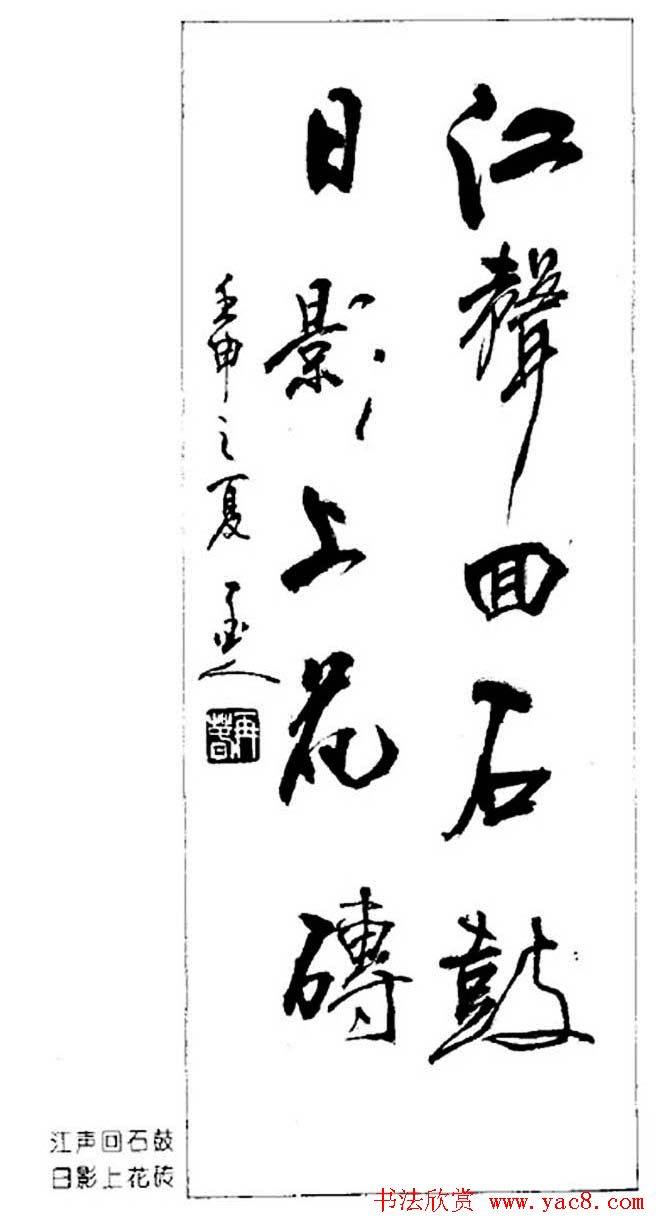 江聲回石鼓
日影上花磚
壬申之夏
再暮
江声回石鼓
日影上花砖
书法欣赏 www.yac8.com